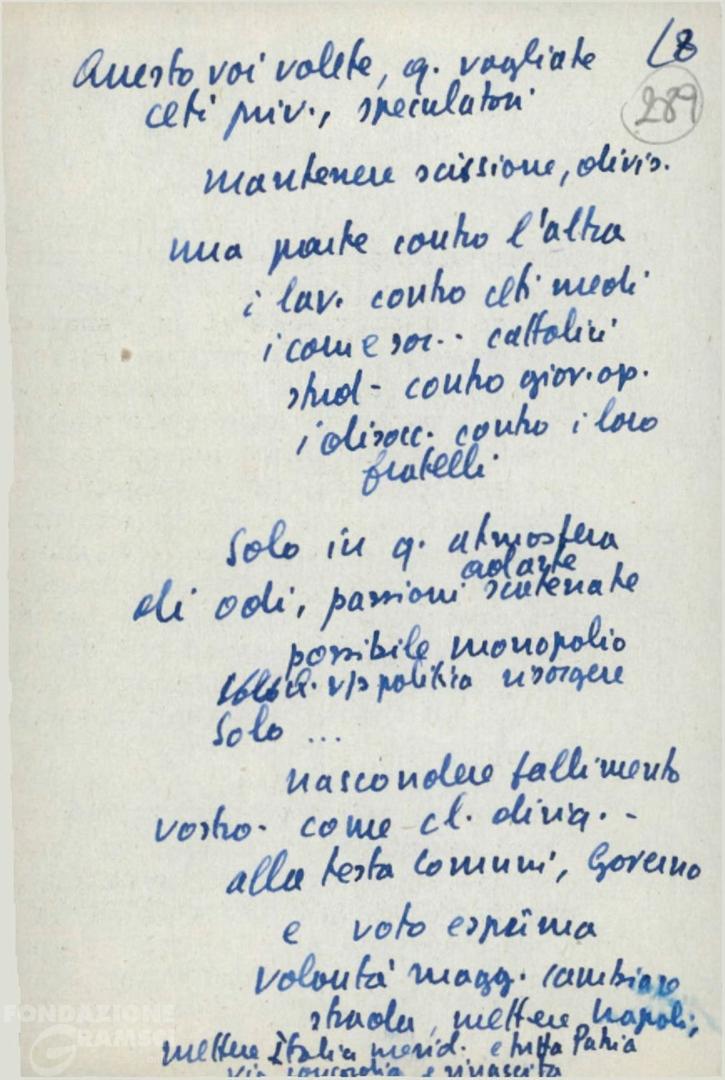 (8
289
Questo voi volete, q. vogliate
ceti priv., speculatori
mantenere scissione, divis.
una parte contro l'altra
i lav. contro ceti medi
i com e soc. - cattolici
stud - contro giov. op.
i disocc. contro i loro
fratelli
Solo in q. atmosfera
di odi, passioni scatenate
possibile monopolio
politica risorgere
Solo ...
nascondere fallimento
vostro. come cl. dirig. -
alla testa Comuni, Governo
e voto esprima
volontà magg. cambiare
strada, mettere Napoli,
mettere Italia merid. e tutta Patria
via concordia e rinascita
FONDAZIONE
GRAMSCI